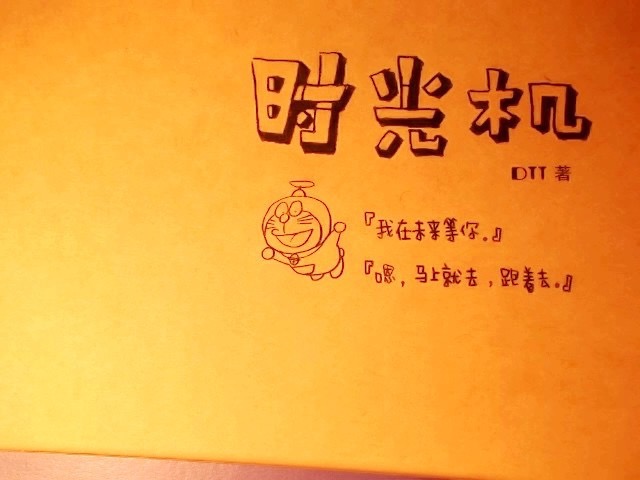 时光机
DTT 著
『我在未来等你。』
『嗯，马上就去，跑着去。』